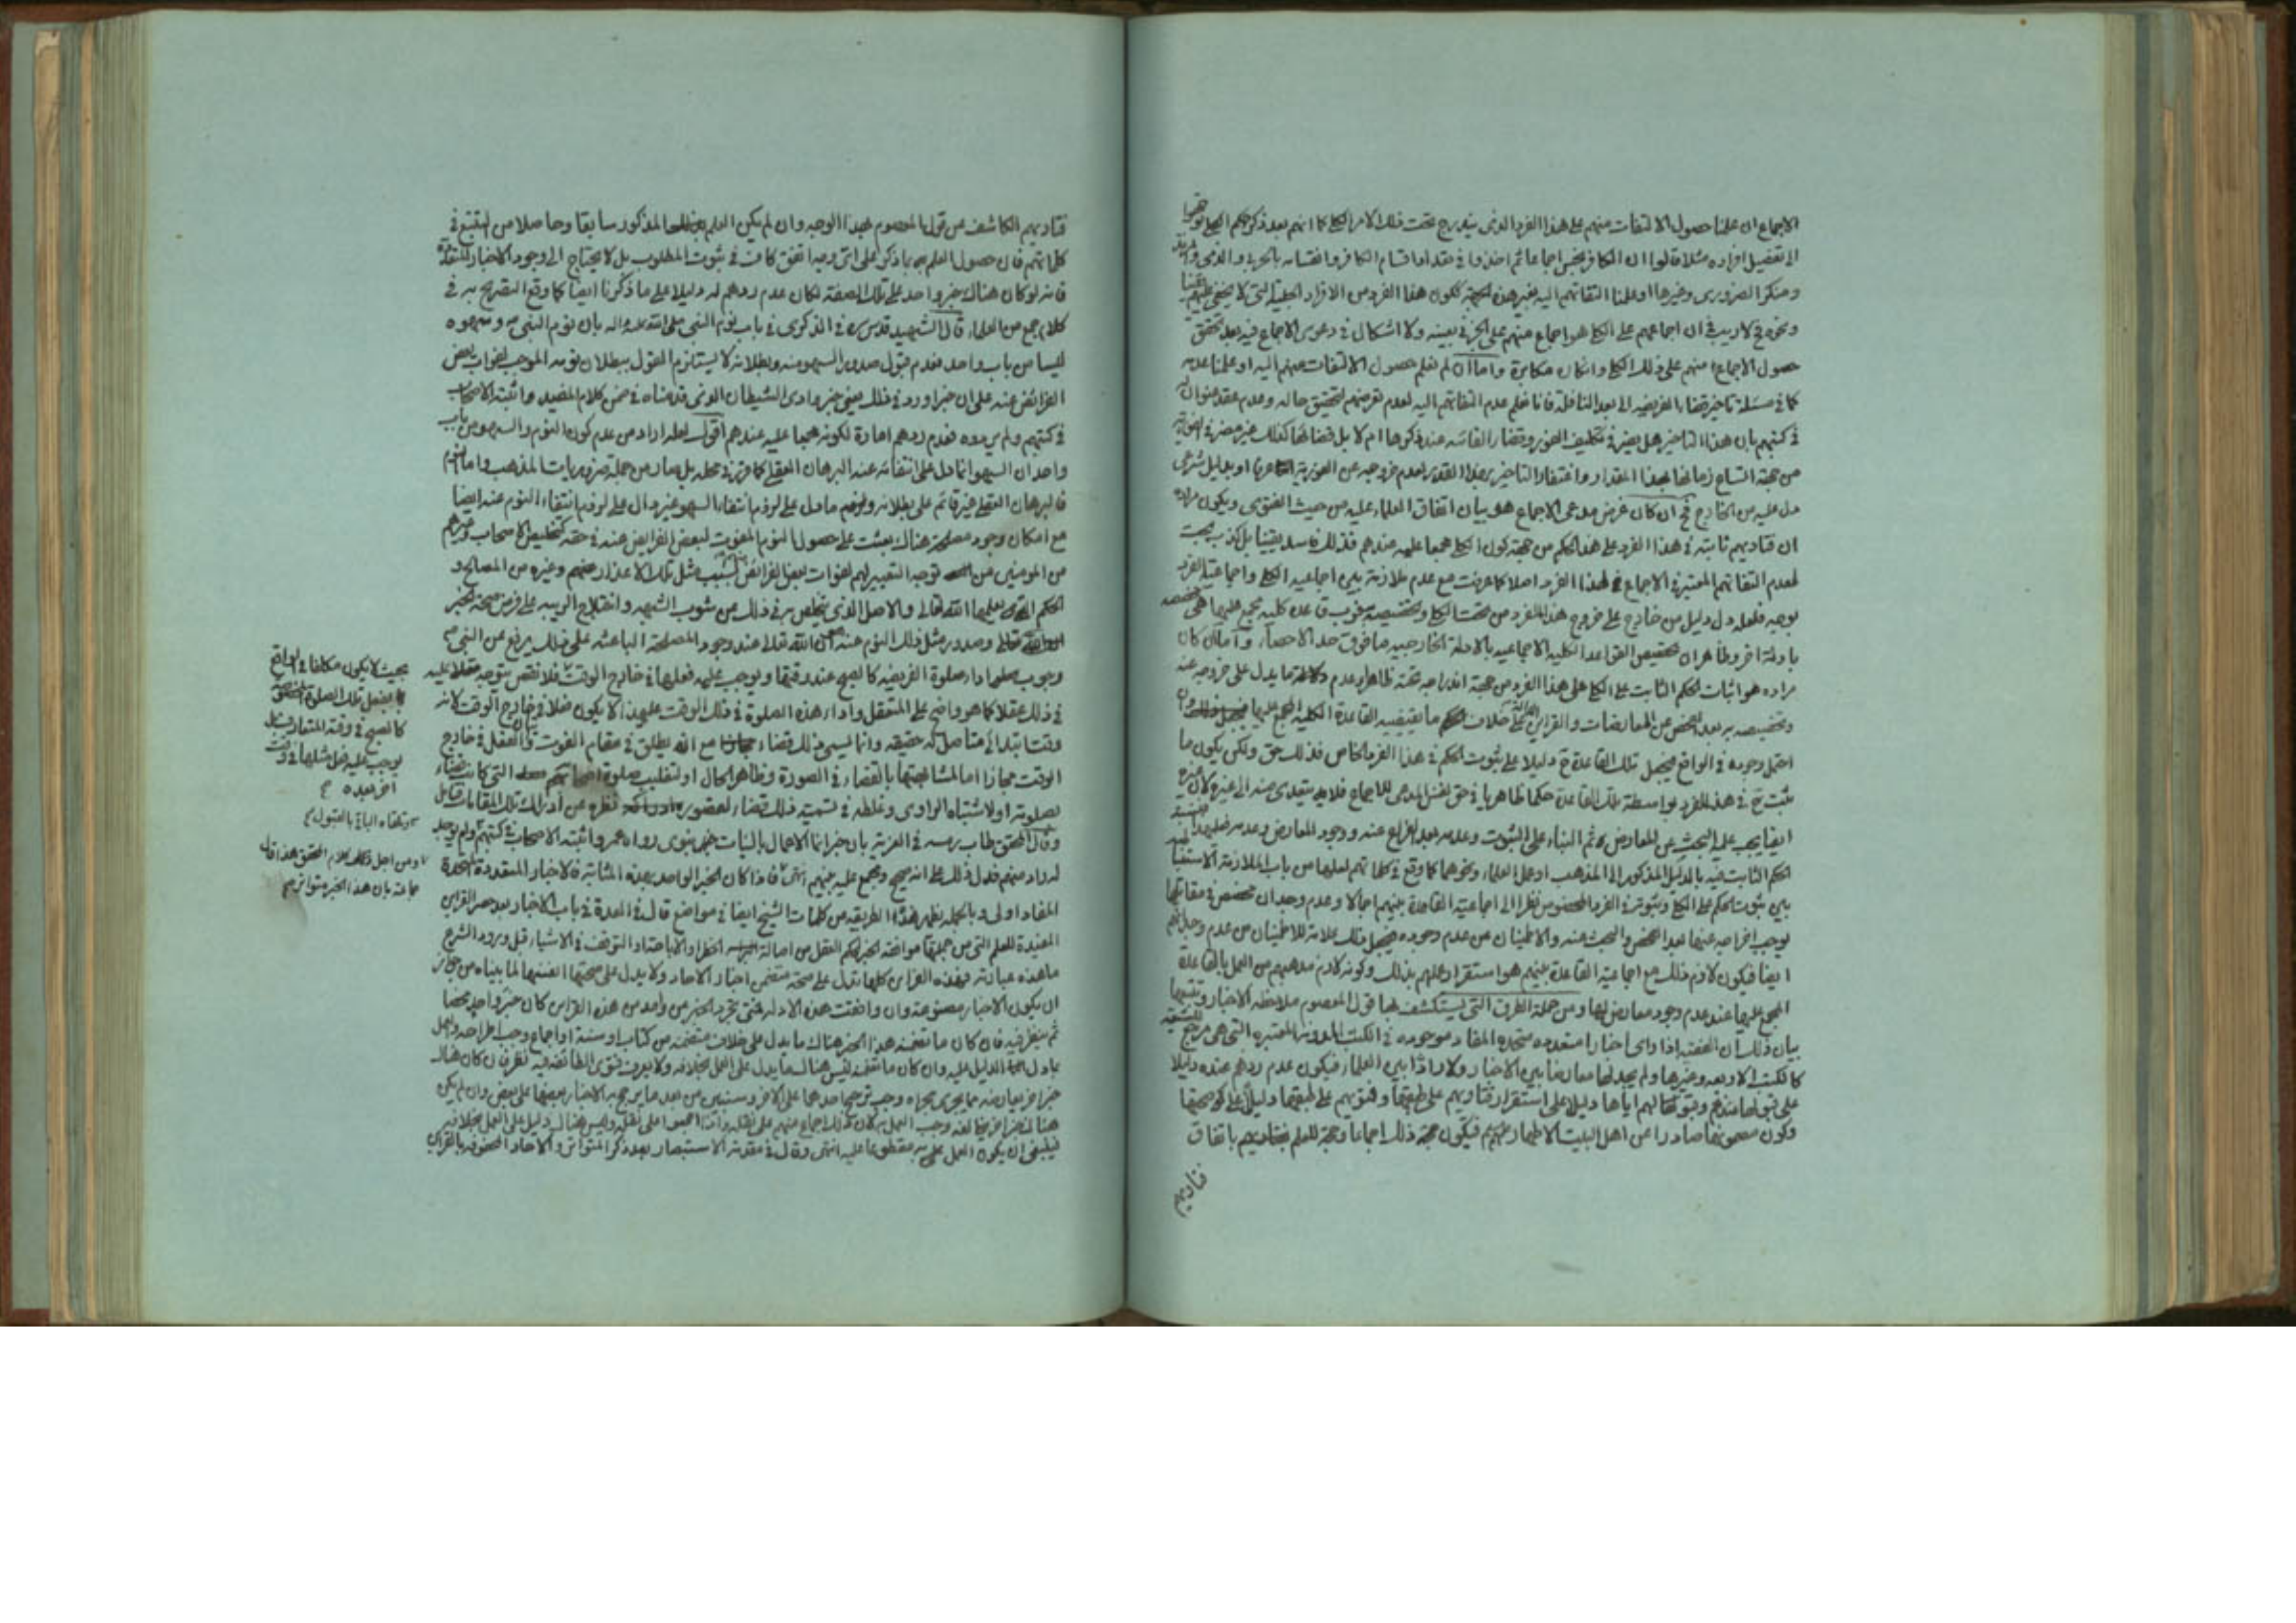 الاجماع ان علمنا حصول الالتفات منهم على هذا الفرد الذى يندرج تحت ذلك الامر الكلى كما انهم بعد ذكر حكم الكلى
الى تفصيل افراده مثلا قالوا ان الكافر نجس اجماعا ثم اخذوا فى تعداد اقسام الكافر وانقسامه بالحربى والذمى والمرتد
ومنكر الضرورى وغيرها او علمنا التفاتهم اليه بغير هذه الجهة ككون هذا الفرد من الافراد الجلية التى لا يخفى عليهم
ونحوه فلا ريب فى ان اجماعهم على الكلى هو اجماع منهم على الجزئى بعينه ولا اشكال فى دعوى الاجماع فيه بعد تحقق
حصول الاجماع منهم على ذلك الكلى وانكاره مكابرة واما ان لم نعلم حصول الالتفات منهم اليه او علمنا عدمه
كما فى مسئلة تاخير قضاء الفريضه الى بعد النافلة فانا نعلم عدم التفاتهم اليه لعدم تعرضهم لتحقيق حاله وعدم عقد عنوان له
فى كتبهم بان هذا التاخير هل يضر فى تكليف الفور وقضاء الفائته عند ذكرها ام لا بل قضائها كذلك غير مضر فى الفورية
من جهة اتساع زمانها بهذا المقدار واغتفار التاخير بهذا القدر لعدم خروجه عن الفورية عرفا او بدليل شرعى
دل عليه من الخارج فح ان كان غرض مدعى الاجماع هو بيان اتفاق العلماء عليه من حيث الفتوى ويكون مراده
ان فتاويهم ثابتة فى هذا الفرد على هذا الحكم من جهة كون الكلى مجمعا عليه عندهم فذلك فاسد يقينا بل كذب بحت
لعدم التفاتهم المعتبر فى الاجماع لهذا الفرد اصلا كما عرفت مع عدم ملازمة بين اجماعيه الكلى واجماعية الفرد
بوجه فلعله دل دليل من خارج على خروج هذا الفرد من تحت الكلى وتخصيصه فرب قاعدة كليه مجمع عليها هى مخصصه
بادلة اخر وظاهر ان تخصيص القواعد الكليه الاجماعيه بالادلة الخارجيه مما فوق حد الاحصاء واما ان كان
مراده هو اثبات الحكم الثابت على الكلى على هذا الفرد من جهة اندراجه تحته ظاهرا وعدم دلالة ما يدل على خروجه عنه
وتخصيصه به بعد الفحص عن المعارضات والقراين الدالة على خلاف ما يقتضيه القاعدة الكليه المجمع عليها وان
احتمل وجوده فى الواقع فيجعل تلك القاعدة ح دليلا على ثبوت الحكم فى هذا الفرد الخاص فذلك حق ولكن يكون ما
يثبت ح فى هذا الفرد بواسطة تلك القاعدة حكما ظاهريا فى حق نفس المدعى للاجماع فلا يتعدى منه الى غيره لان غيره
ايضا يجب عليه البحث عن المعارض ثم البناء على الثبوت وعدمه بعد الفراغ عنه ووجود المعارض وعدمه
الحكم الثابت فيه بالدليل المذكور الى المذهب او عمل العلماء ونحوهما كما وقع فى كلماتهم لعلها من باب الملازمة
بين ثبوت الحكم على الكلى وثبوته فى الفرد المخصوص نظرا الى اجماعية القاعدة بينهم اجمالا وعدم وجدان مخصص فى مقابلها
يوجب اخراجه عنها بعد الفحص والبحث عنه والاطمينان من عدم وجوده فيجعل ذلك علامة للاطمينان من عدم وجدانهم
ايضا فيكون لازم ذلك مع اجماعية القاعدة بينهم هو استقرار عملهم بذلك وكونه لازم مذهبهم من العمل بالقاعدة
المجمع عليها عند عدم وجود معارض لها ومن جملة الطرق التى يستكشف بها قول المعصوم ملاحظة الاخبار وتتبعها
بيان ذلك ان الفقيه اذا راى اخبارا متعدده متحده المفاد موجوده فى الكتب المدونه المعتبره التى هى مرجع الشيعه
كالكتب الاربعه وغيرها ولم يجد لها معارضا بين الاخبار ولا رادا بين العلماء فيكون عدم ردهم عنده دليلا
على قبولها عندهم وقبولهم اياها دليلا على استقرار فتاويهم على طبقها وفتويهم على طبقها دليلا على صحتها
وكون مضمونها صادرا عن اهل البيت الاطهار عليهم فيكون حجة ذلك اجماعا وحجة للعلم بفتاويهم باتفاق
فتاويهم
فتاويهم الكاشف عن قول المعصوم بهذا الوجه وان لم يكن العلم المذكور سابقا وحاصلا من التتبع فى
كلماتهم فان حصول العلم بما ذكر على اى وجه اتفق كاف فى ثبوت المطلوب بل لا يحتاج الى وجود الاخبار المتعددة
فانه لو كان هناك خبر واحد على تلك الصفة لكان عدم ردهم له دليلا على ما ذكرنا ايضا كما وقع التصريح به فى
كلام جمع من العلماء قال الشهيد قدس سره فى الذكرى فى باب نوم النبى صلى الله عليه واله بان نوم النبى ص وسهوه
ليسا من باب واحد فعدم قبول صدور السهو منه وبطلانه لا يستلزم القول ببطلان نومه الموجب لفوات بعض
الفرائض عنه على ان خبرا ورد فى ذلك يعنى خبر وادى الشيطان الذى قدمناه فى ضمن كلام المفيد واثبته الاصحاب
فى كتبهم ولم يردوه فعدم ردهم امارة لكونه مجمعا عليه عندهم اقول لعله اراد من عدم كون النوم والسهو من باب
واحد ان السهو انما دل على انتفائه عنه البرهان العقلى كما قرر فى محله بل صار من جملة ضروريات المذهب واما النوم
فالبرهان العقلى غير قائم على بطلانه وما دل على لزوم انتفاء السهو غير دال على لزوم انتفاء النوم عنه ايضا
مع امكان وجود مصلحة هناك بعثت على حصول النوم المفوت لبعض الفرايض عنه فى حقه كتخليص الاصحاب وغيرهم
من المومنين من توجه التعيير لهم لفوات بعض الفرائض بسبب مثل تلك الاعذار عنهم وغيره من المصالح و
الحكم التى يعلمها الله تعالى والاصل الذى يتخلص به فى ذلك من شوب الشبهه وانقلاع الريبه على فرض صحة الخبر
وصدور مثل ذلك النوم عنه ان الله تعالى عند وجود المصلحة الباعثه على ذلك يرفع عن النبى ص
وجوب صلوة الفريضه كالصبح عند وقتها ويوجب عليه فعلها فى خارج الوقت فلا نقص يتوجه عليه
فى ذلك عقلا كما هو واضح على المتعقل واداء هذه الصلوة فى ذلك الوقت عليهذا لا يكون فعلا فى خارج الوقت لانه
وقت ابتدائى متاصل له حقيقه وانما يسمى ذلك قضاء مع انه يطلق فى مقام الفوت والفعل فى خارج
الوقت مجازا اما لمشابهتها بالقضاء فى الصورة وظاهر الحال او لتغليب صلوة اصحابهم التى كانت قضاء
لصلوته او لاشتباه الراوى وغلطه فى تسمية ذلك قضاء لقصور نظره عن ادراك تلك المقامات
وقال المحقق طاب رمسه فى العزية بان خبر انما الاعمال بالنيات خبر نبوى رواه عمر واثبته الاصحاب فى كتبهم ولم يوجد
له راد منهم فدل ذلك على انه صحيح ومجمع عليه بينهم انتهى فاذا كان الخبر الواحد بهذه المثابة فالاخبار المتعددة المتحدة
المفاد اولى وبالجمله يظهر هذا الطريقه من كلمات الشيخ ايضا فى مواضع قال فى العدة فى باب الاخبار بعد حصر القراين
المفيدة للعلم التى من جملتها موافقة الخبر لحكم العقل من اصالة الحظر او الاباحة او التوقف فى الاشياء قبل ورود الشرع
ما هذه عبارته فهذه القراين كلها تدل على صحة متضمن اخبار الاحاد ولا يدل على صحتها انفسها لما بيناه من جواز
ان يكون الاخبار مصنوعة وان وافقت هذه الادلة فمتى تجرد الخبر عن واحد من هذه القراين كان خبر واحد محضا
ثم ينظر فيه فان كان ما تضمنه هذا الخبر هناك ما يدل على خلاف متضمنه من كتاب او سنة او اجماع وجب اطراحه والعمل
بما دل الدليل عليه وان كان ما تضمنه ليس هناك ما يدل على العمل بخلافه ولا يعرف فتوى الطائفه فيه نظر فان كان هناك
خبر اخر يعارضه مما يجرى مجراه وجب ترجيح احدهما على الاخر وسنبين من بعد ما يرجح به الاخبار بعضها على بعض وان لم يكن
هناك خبر اخر يخالفه وجب العمل به لان ذلك اجماع منهم على نقله واذا اجمعوا على نقله وليس هناك دليل على العمل بخلافه
فينبغى ان يكون العمل به مقطوعا عليه انتهى وقال فى مقدمة الاستبصار بعد ذكر المتواتر والاحاد المحفوفه بالقراين
بحيث لا يكون مكلفا فى الواقع
بفعل تلك الصلوة المخصوصه
كالصبح فى وقته المتعارف بل
يوجب عليه فعل مثلها فى وقت
اخر بعده
وتلقاه الباقى بالقبول
ومن اجل ذلك كلام المحقق هذا قال
جماعة بان هذا الخبر متواتر